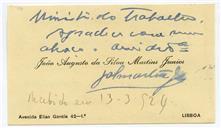 Ministro do Trabalho,
agradece com um
abraço
João Augusto da Silva Martins Junior
Recebido em 13-3-924
Avenida Elias Garcia 62-1.º LISBOA